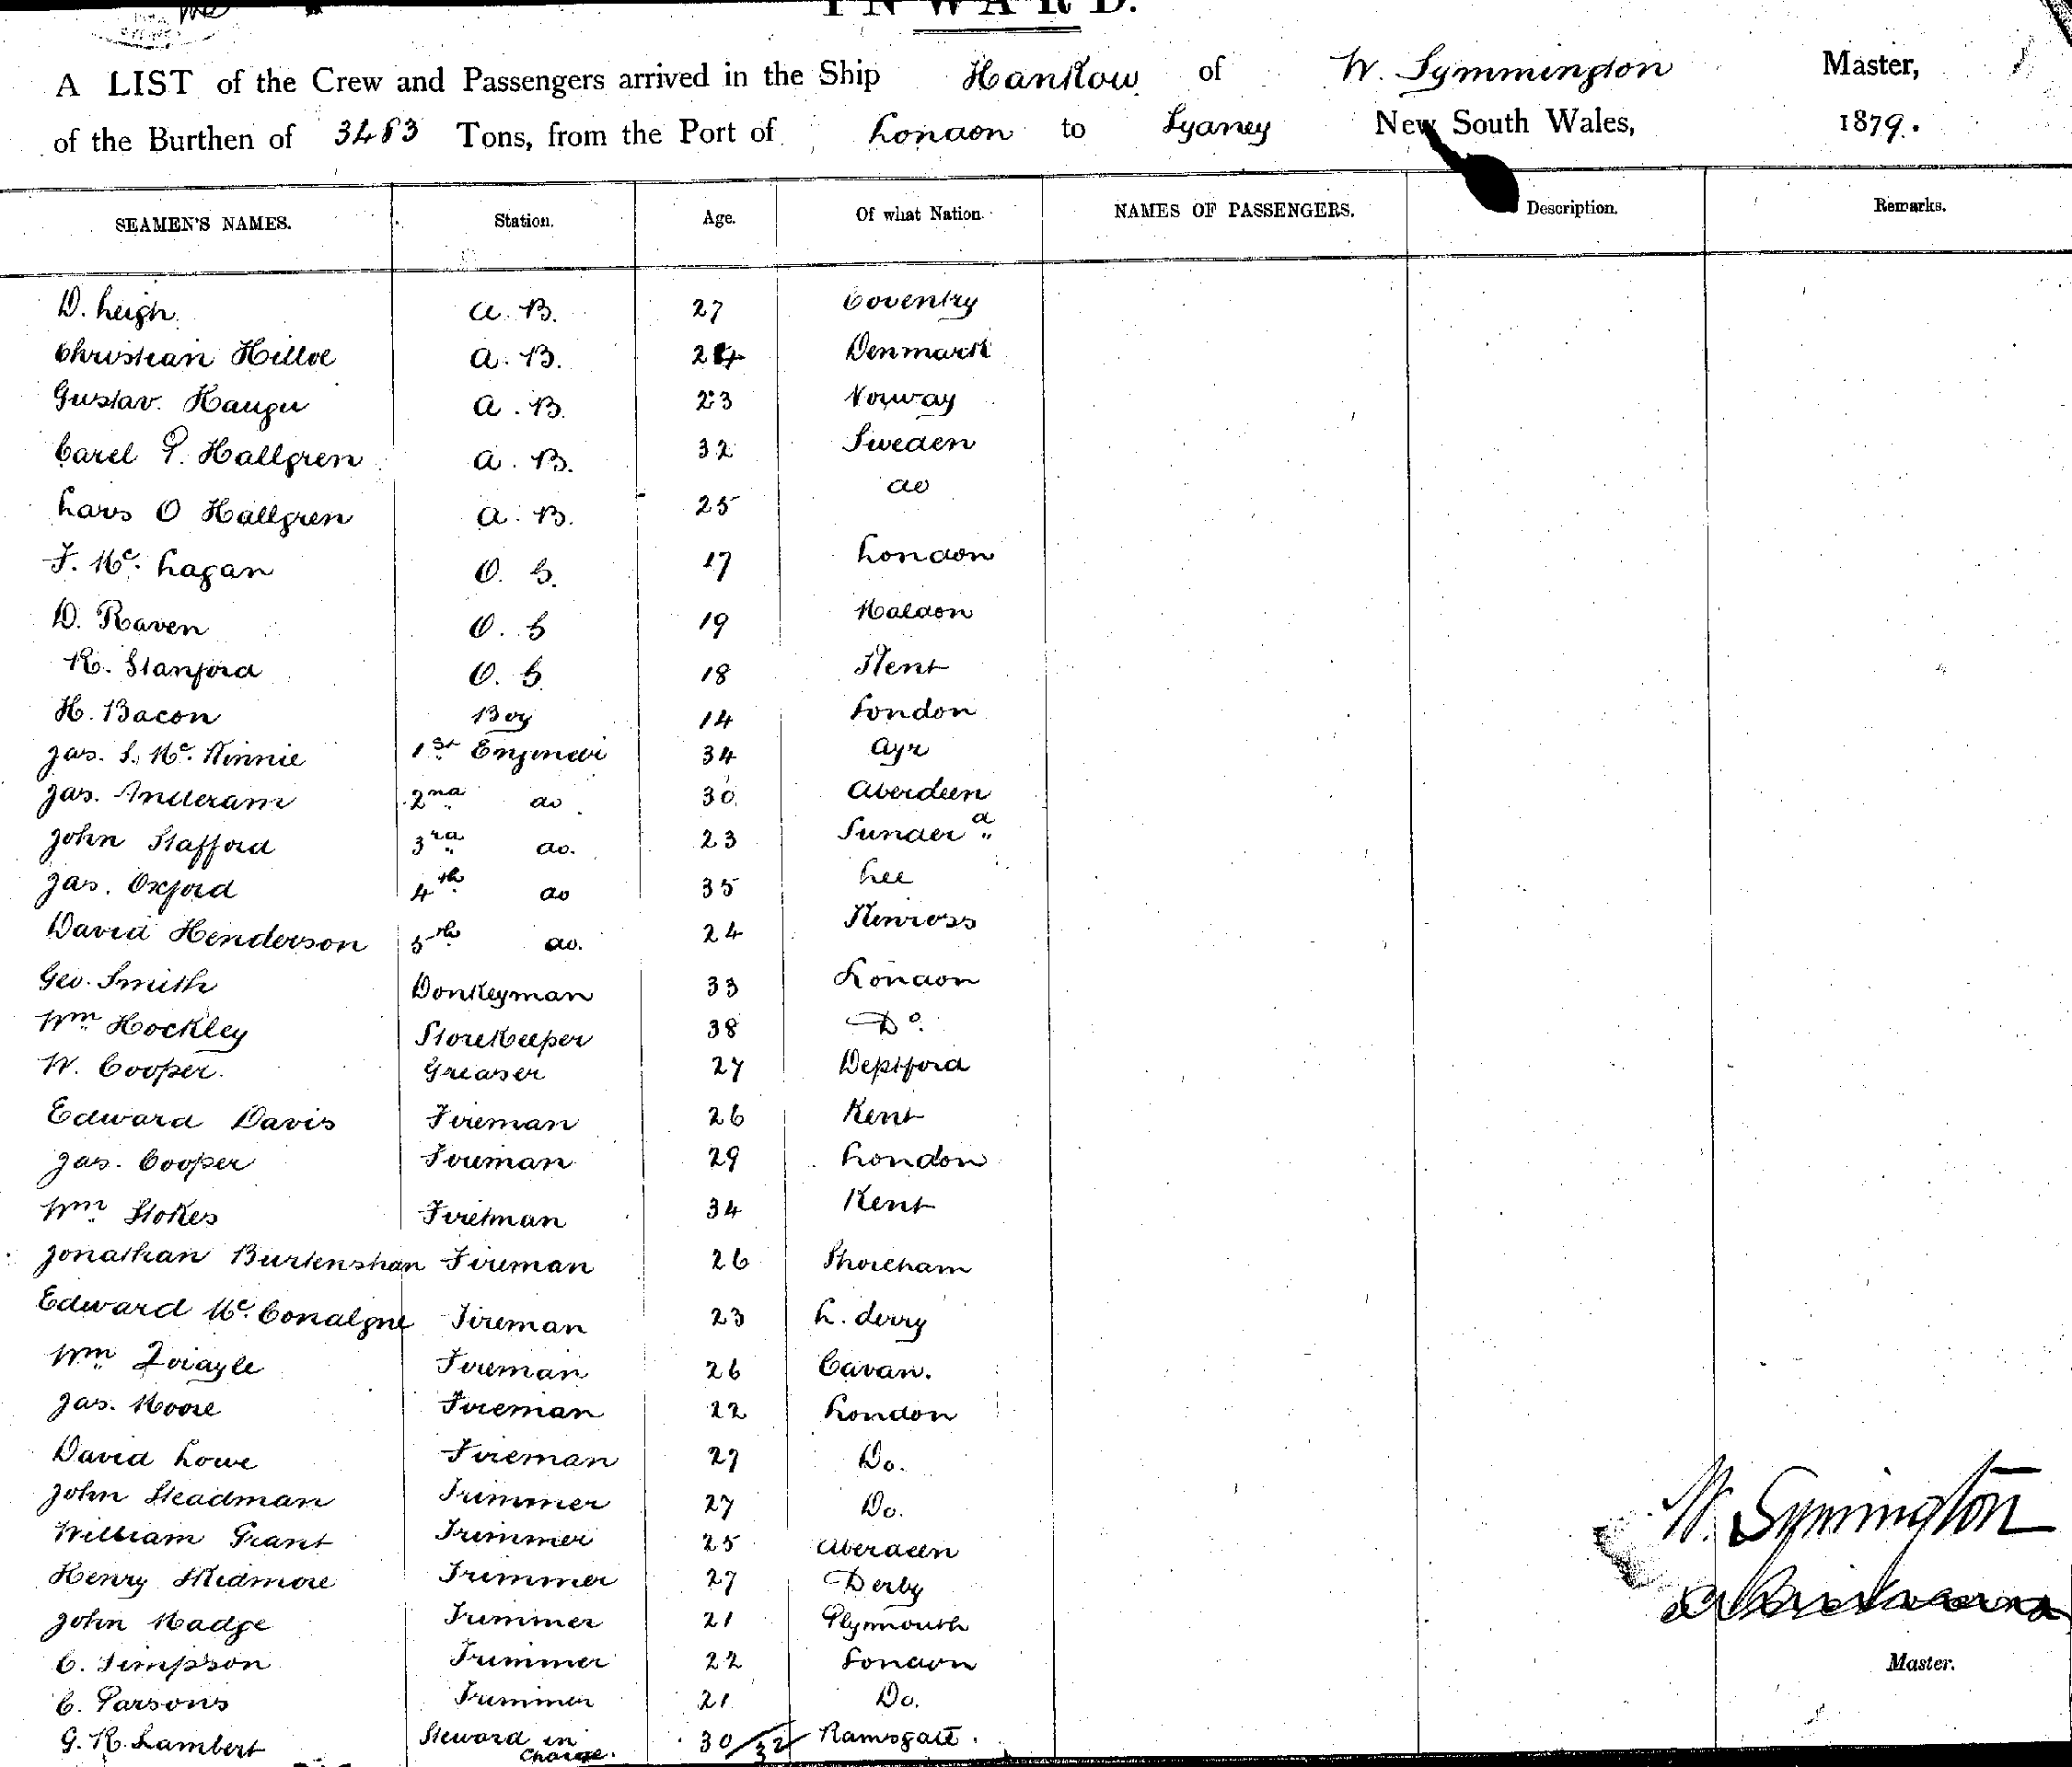 INWARD.
A LIST of the Crew and Passengers arrived in the Ship Hankow of W. Symmington Master,
of the Burthen of 3483 Tons, from the Port of London to Sydney New South Wales, 1879.
SEAMEN'S NAMES. Station. Age. Of what Nation. NAMES OF PASSENGERS. Description. Remarks.
D. Leigh A. B. 27 Coventry
Christian Hilloe A. B. 24 Denmark
Gustav. Haugu A. B. 23 Norway
Carel P. Hallgren A. B. 32 Sweden
Lars O Hallgren A. B. 25 do
J. Mc. Lagan O. S. 17 London
D. Raven O. S 19 Maldon
R. Stanford O. S. 18 Kent
H. Bacon Boy 14 London
Jas. S. Mc. Kinnie 1st Engineer 34 Ayr
Jas. 2nd do 30 Aberdeen
John Stafford 3rd do. 23 Sunderd
Jas. Oxford 4th do 35 Lee
David Henderson 5th do. 24 Kinross
Geo. Smith Donkeyman 33 London
Wm Hockley Storekeeper 38 Do.
W. Cooper. Greaser 27 Deptford
Edward Davis Fireman 26 Kent
Jas. Cooper Fireman 29 London
Wm Stokes Fireman 34 Kent
Jonathan Burtenshaw Fireman 26 Shoreham
Edward Mc. Conalgne Fireman 23 L. derry
Wm Fireman 26 Cavan.
Jas. Moore Fireman 22 London
David Lowe Fireman 27 Do.
John Steadman Trimmer 27 Do.
William Grant Trimmer 25 Aberdeen
Henry Skidmore Trimmer 27 Derby
John Madge Trimmer 21 Plymouth
C. Simpson Trimmer 22 London
C. Parsons Trimmer 21 Do.
G. R. Lambert Steward in charge. 30/32 Ramsgate.
W. Symington
Master.